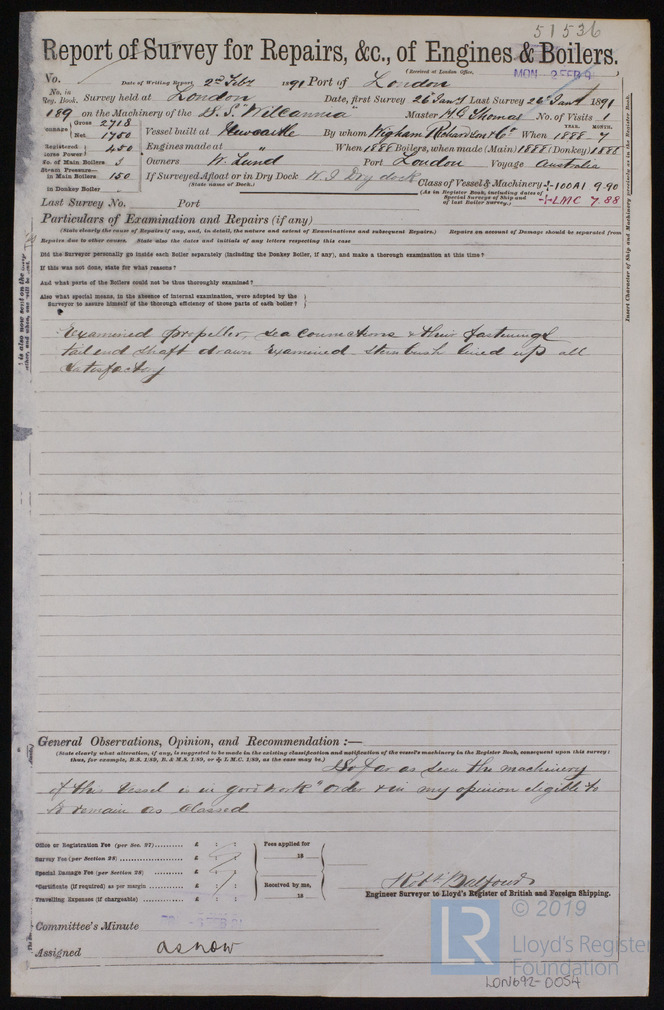 51536
Report of Survey for Repairs, &c., of Engines & Boilers.
(Received at London Office,
No. Date of Writing Report 2nd Feby 1891 Port of London MON 2 FEB 9
No. in Reg. Book. Survey held at London Date, first Survey 26 Jany Last Survey 26 Jany 1891
189 on the Machinery of the S.S. "Wilcannia" Master Thomas No. of Visits 1
Tonnage Gross 2718 Net 1750 Vessel built at Newcastle By whom Wigham Richardson & Co. When 1888 YEAR. MONTH. 7
Registered Horse Power 450 Engines made at " When 1888 Boilers, when made (Main) 1888 (Donkey) 1888
No. of Main Boilers 3 Owners W. Lund Port London Voyage Australia
Steam Pressure in Main Boilers 150 If Surveyed Afloat or in Dry Dock W. I Dry dock Class of Vessel & Machinery 100A1 9.90
in Donkey Boiler (State name of Dock.) (As in Register Book, including dates of Special Surveys of Ship and of last Boiler Survey.) LMC 7.88
Last Survey No. Port
Particulars of Examination and Repairs (if any)
(State clearly the cause of Repairs if any, and, in detail, the nature and extent of Examinations and subsequent Repairs.) Repairs on account of Damage should be separated from
Repairs due to other causes. State also the dates and initials of any letters respecting this case
Did the Surveyor personally go inside each Boiler separately (including the Donkey Boiler, if any), and make a thorough examination at this time?
If this was not done, state for what reasons?
And what parts of the Boilers could not be thus thoroughly examined?
Also what special means, in the absence of internal examination, were adopted by the
Surveyor to assure himself of the thorough efficiency of those parts of each boiler?
Insert Character of Ship and Machinery precisely as in the Register Book.
Examined propeller, sea connections & their fastenings
tail end shaft drawn Examined. Stern bush lined up all
satisfactory
General Observations, Opinion, and Recommendation :—
(State clearly what alteration, if any, is suggested to be made in the existing classification and notification of the vessel's machinery in the Register Book, consequent upon this survey:
thus, for example, B.S. 1/89, B. & M.S. 1/89, or L.M.C. 1/89, as the case may be.)
So far as seen the machinery
of this vessel is in good work" order & in my opinion eligible to
to remain as classed
Office or Registration Fee (per Sec. 27) £ : : Fees applied for
Survey Fee (per Section 28) £ : : 18
Special Damage Fee (per Section 28) £ : :
*Certificate (if required) as per margin £ : : Received by me,
Travelling Expenses (if chargeable) £ : : 18
Robt. Balfour
Engineer Surveyor to Lloyd's Register of British and Foreign Shipping.
Committee's Minute
Assigned as now
LR © 2019
Lloyd's Register
Foundation
LON692-0054